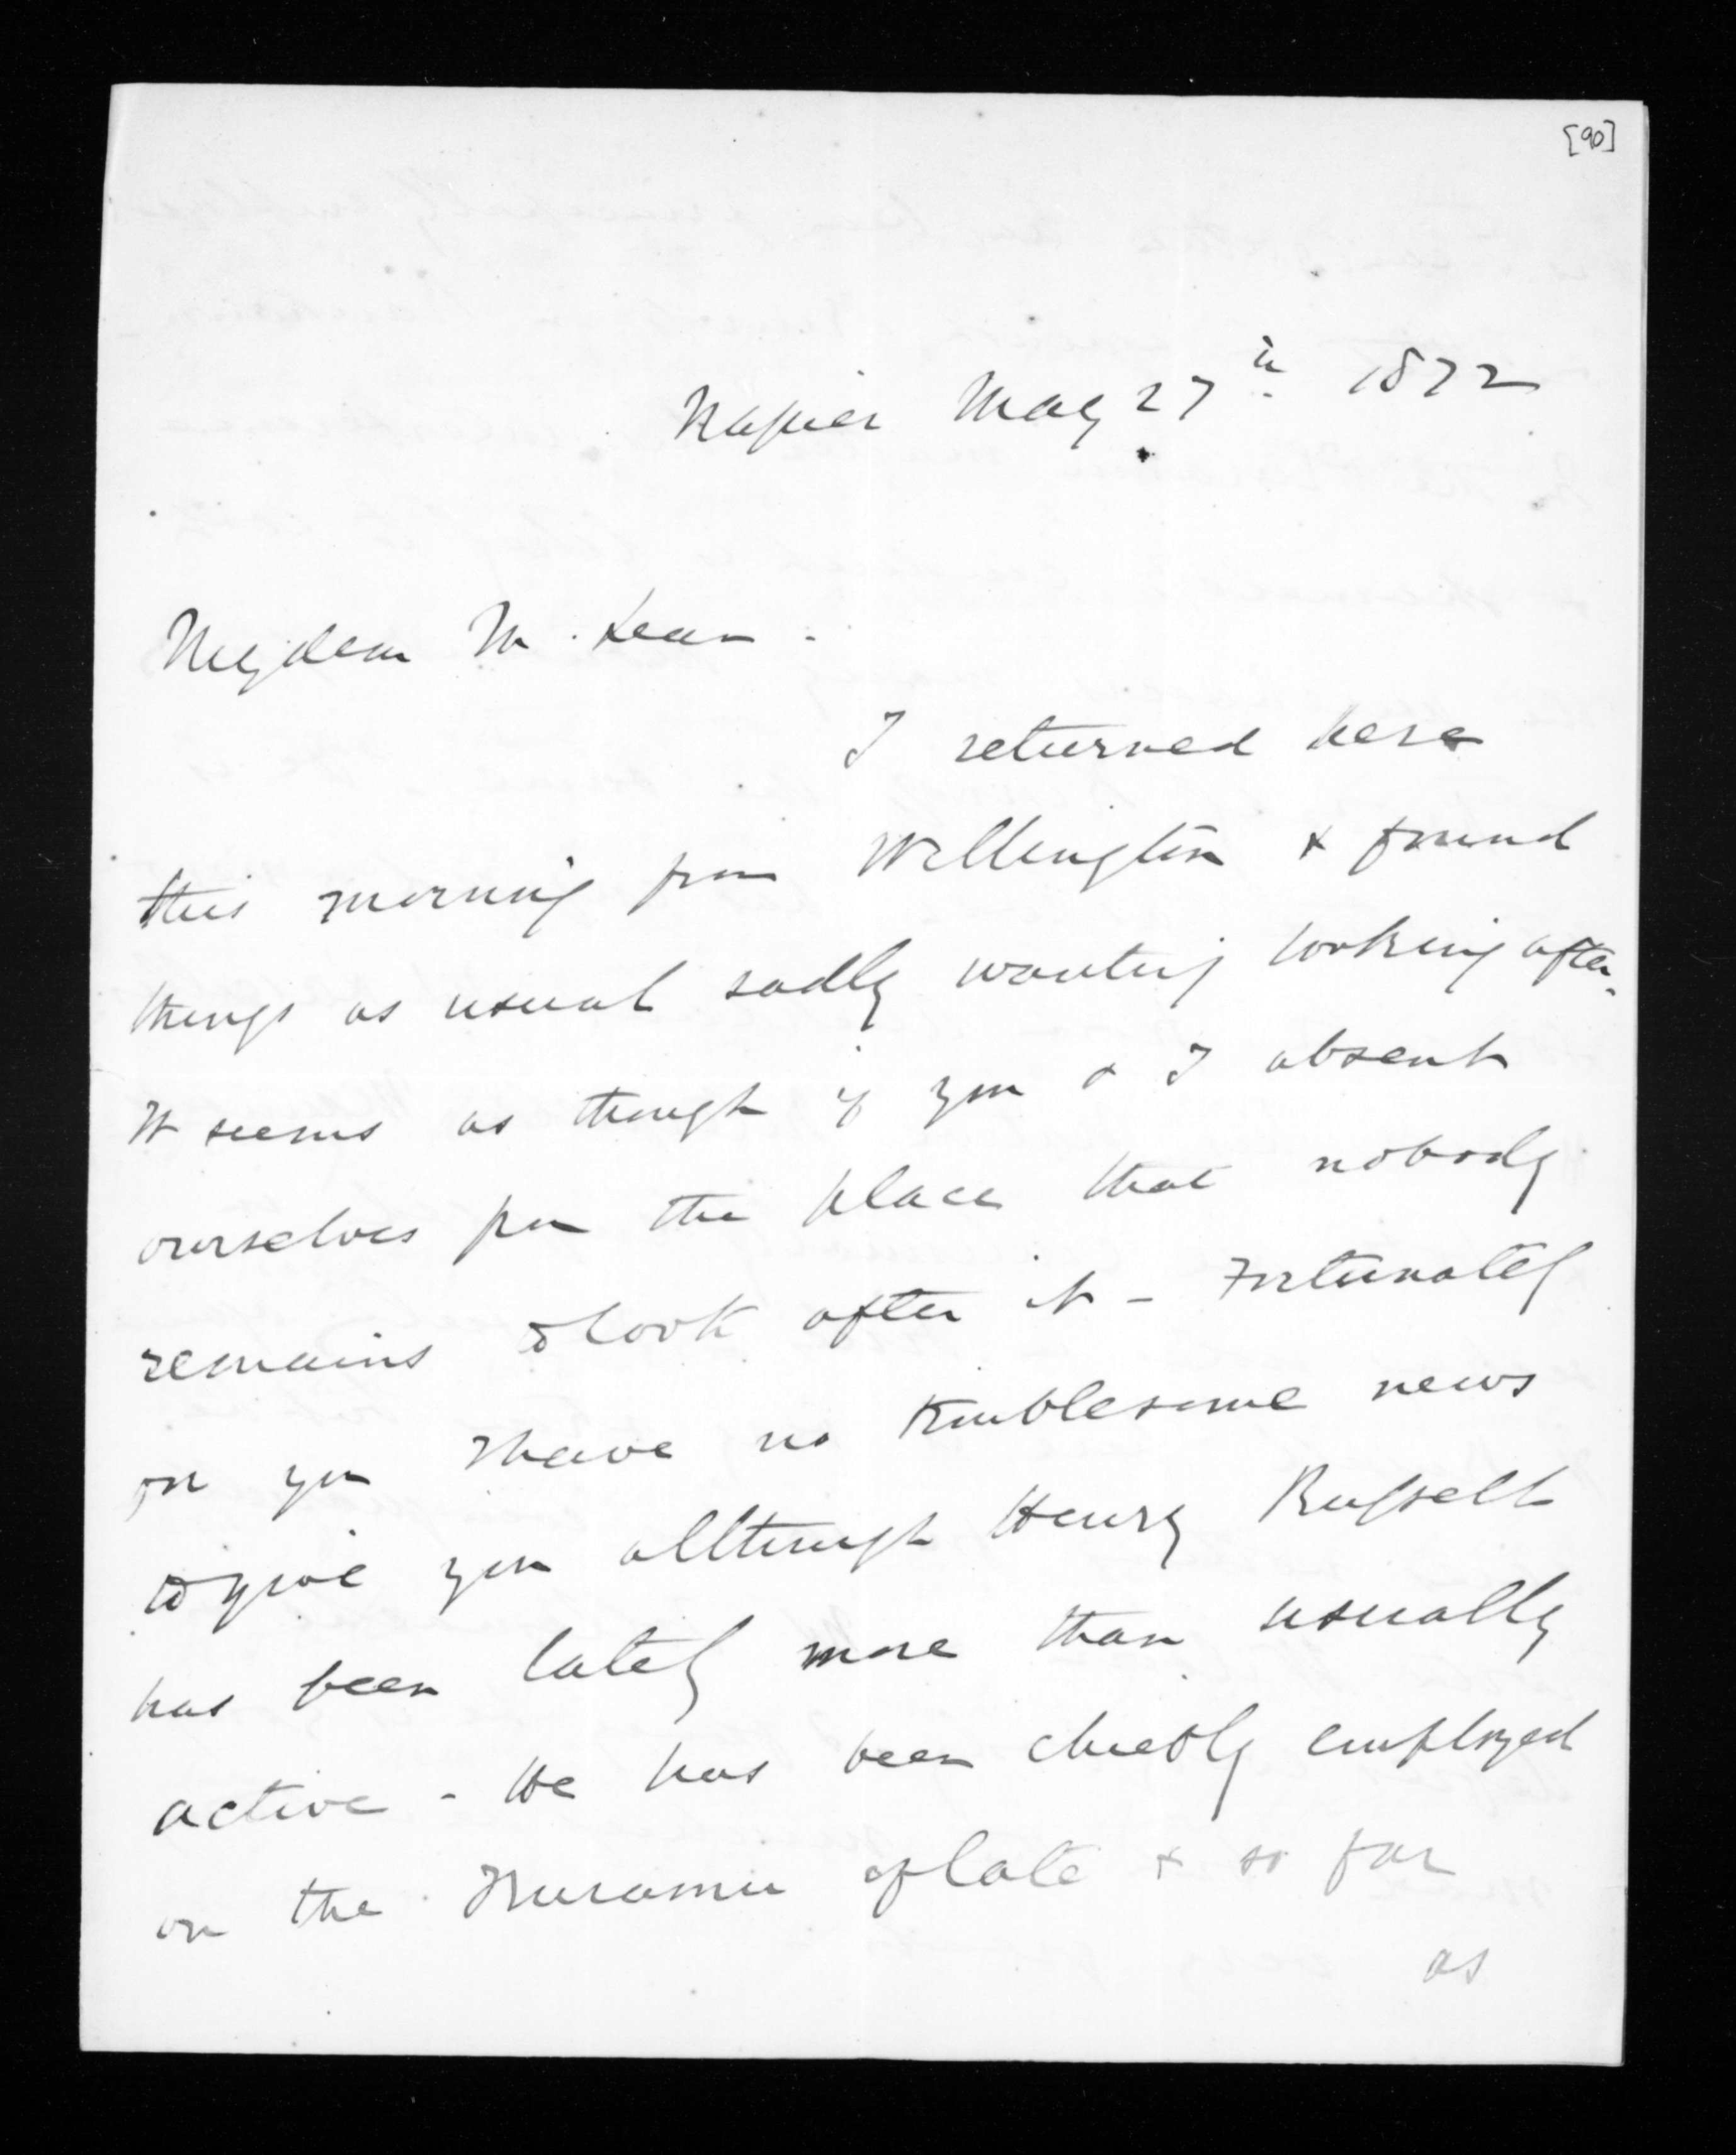 [90]
Napier May 27th 1872
My dear McLean.
I returned here
this morning from Wellington & found
things as usual sadly wanting looking after.
It seems as though if you & I absent
ourselves from the place that nobody
remains to look after it - Fortunately
for you I have no troublesome news
to give you although Henry Russell
has been lately more than usually
active - He has been chiefly employed
on the of late & so far
as